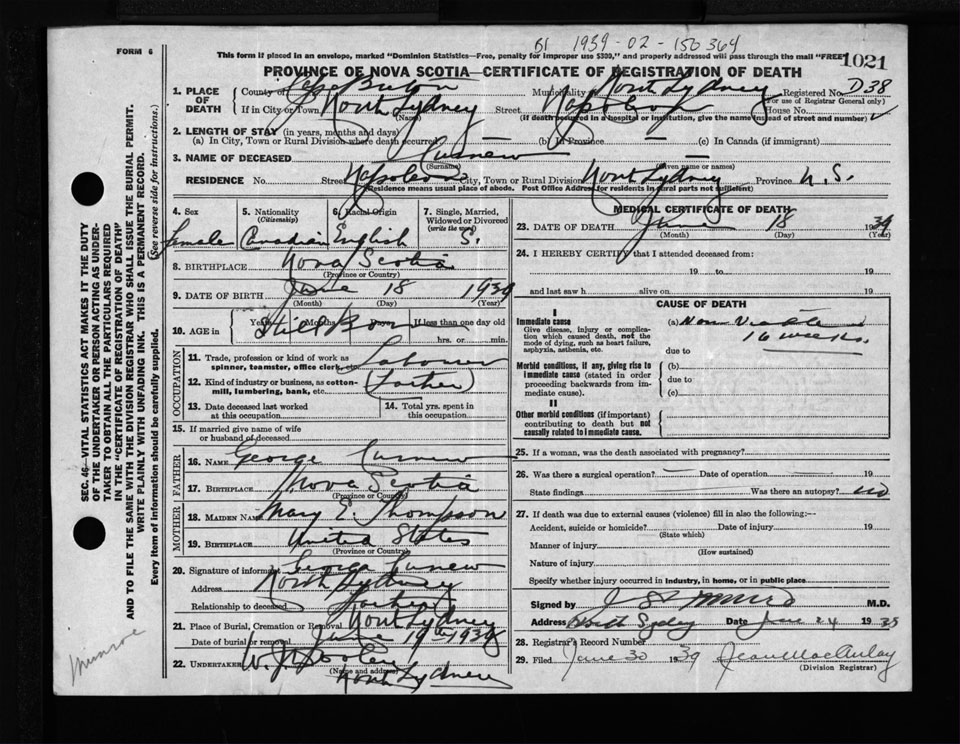 B1 1939-02-150364
FORM 6
This form if placed in an envelope, marked "Dominion Statistics—Free, penalty for improper use $300," and properly addressed will pass through the mail "FREE"
1021
PROVINCE OF NOVA SCOTIA—CERTIFICATE OF REGISTRATION OF DEATH
1. PLACE OF DEATH County of Cape Breton Municipality North Sydney Registered No. D38
(For use of Registrar General only)
If in City or Town North Sydney Street Napoleon House No.
(Name) (If death occurred in a hospital or institution, give the name instead of street and number)
2. LENGTH OF STAY (in years, months and days)
(a) In City, Town or Rural Division where death occurred — (b) In Province — (c) In Canada (if immigrant)
3. NAME OF DECEASED Curnew —
(Surname) (Given name or names)
RESIDENCE No. Street Napoleon City, Town or Rural Division North Sydney Province N.S.
(Residence means usual place of abode. Post Office Address for residents in rural parts not sufficient)
4. Sex Female
5. Nationality (Citizenship) Canadian
6. Racial Origin English
7. Single, Married, Widowed or Divorced (write the word) S.
8. BIRTHPLACE Nova Scotia
(Province or Country)
9. DATE OF BIRTH June 18 1939
(Month) (Day) (Year)
10. AGE in Years Months Days If less than one day old
Still Born hrs. or min.
OCCUPATION
11. Trade, profession or kind of work as spinner, teamster, office clerk, etc. Labourer
12. Kind of industry or business, as cotton-mill, lumbering, bank, etc. (Father)
13. Date deceased last worked at this occupation
14. Total yrs. spent in this occupation
15. If married give name of wife or husband of deceased
FATHER
16. NAME George Curnew
17. BIRTHPLACE Nova Scotia
(Province or Country)
MOTHER
18. MAIDEN NAME Mary E. Thompson
19. BIRTHPLACE United States
(Province or Country)
20. Signature of informant George Curnew
Address North Sydney
Relationship to deceased Father
21. Place of Burial, Cremation or Removal North Sydney
Date of burial or removal June 19th 1939
22. UNDERTAKER W. J. Dooley
(Name and address)
North Sydney
MEDICAL CERTIFICATE OF DEATH
23. DATE OF DEATH June 18 1939
(Month) (Day) (Year)
24. I HEREBY CERTIFY that I attended deceased from:
19 to 19
and last saw h alive on 19
CAUSE OF DEATH
I
Immediate cause (a) Non Viable
Give disease, injury or complication which caused death, not the mode of dying, such as heart failure, asphyxia, asthenia, etc.
16 weeks.
due to
Morbid conditions, if any, giving rise to immediate cause (stated in order proceeding backwards from immediate cause).
(b)
due to
(c)
II
Other morbid conditions (if important) contributing to death but not causally related to immediate cause.
25. If a woman, was the death associated with pregnancy?
26. Was there a surgical operation? — Date of operation — 19
State findings Was there an autopsy? no
27. If death was due to external causes (violence) fill in also the following:—
Accident, suicide or homicide? Date of injury 19
(State which)
Manner of injury
(How sustained)
Nature of injury
Specify whether injury occurred in industry, in home, or in public place
Signed by J S Munro M.D.
Address North Sydney Date June 24 1939
28. Registrar's Record Number
29. Filed June 30 1939 Jean MacAulay
(Division Registrar)
SEC. 46—VITAL STATISTICS ACT MAKES IT THE DUTY
OF THE UNDERTAKER OR PERSON ACTING AS UNDER-
TAKER TO OBTAIN ALL THE PARTICULARS REQUIRED
IN THE "CERTIFICATE OF REGISTRATION OF DEATH"
AND TO FILE THE SAME WITH THE DIVISION REGISTRAR WHO SHALL ISSUE THE BURIAL PERMIT.
WRITE PLAINLY WITH UNFADING INK. THIS IS A PERMANENT RECORD.
Every item of information should be carefully supplied. (See reverse side for instructions.)
Munroe